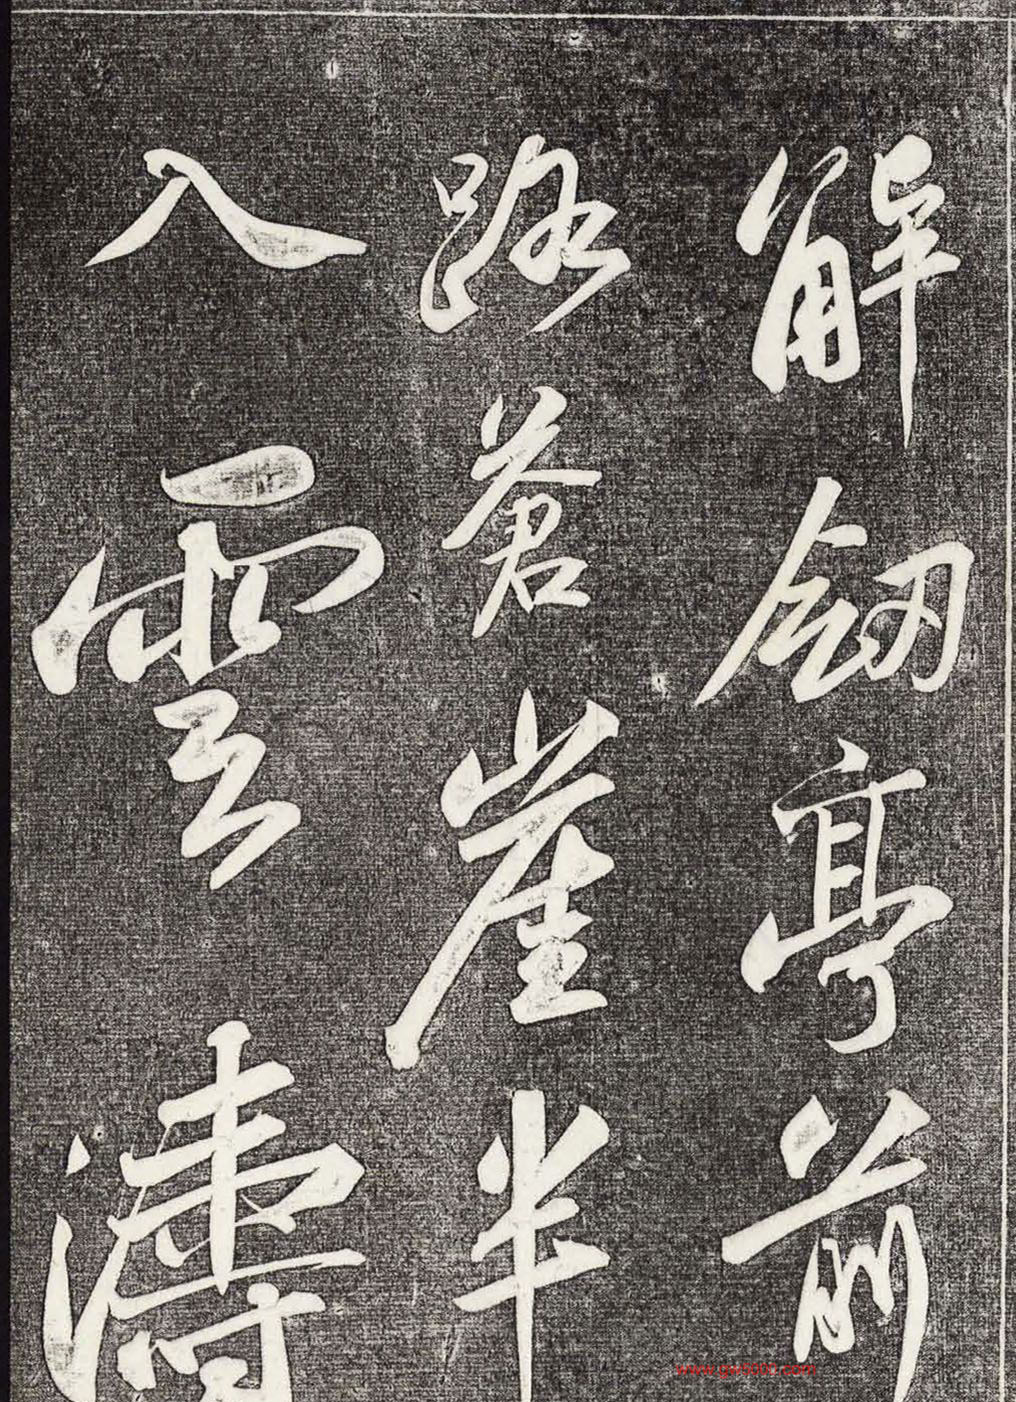 解劔亭前
路蒼崖半
入雲濤
www.gw5000.com